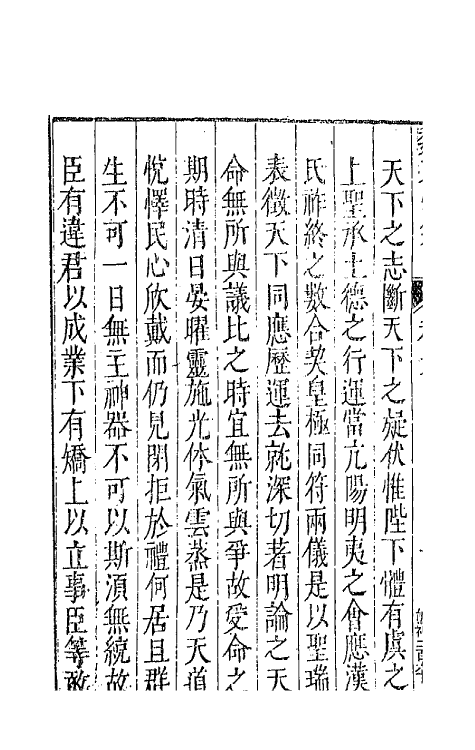 天下之志斷天下之疑伏惟陛下體有虞之
上聖承土德之行運當亢陽明夷之會應漢
氏祚終之數合契皇極同符兩儀是以聖瑞
表徵天下同應歷運去就深切著明論之天
命無所與議比之時宜無所與爭故受命之
期時清日晏曜靈施光休氣雲蒸是乃天道
悅懌民心欣戴而仍見閉拒於禮何居且群
生不可一日無主神器不可以斯須無統故
臣有違君以成業下有矯上以立事臣等敢